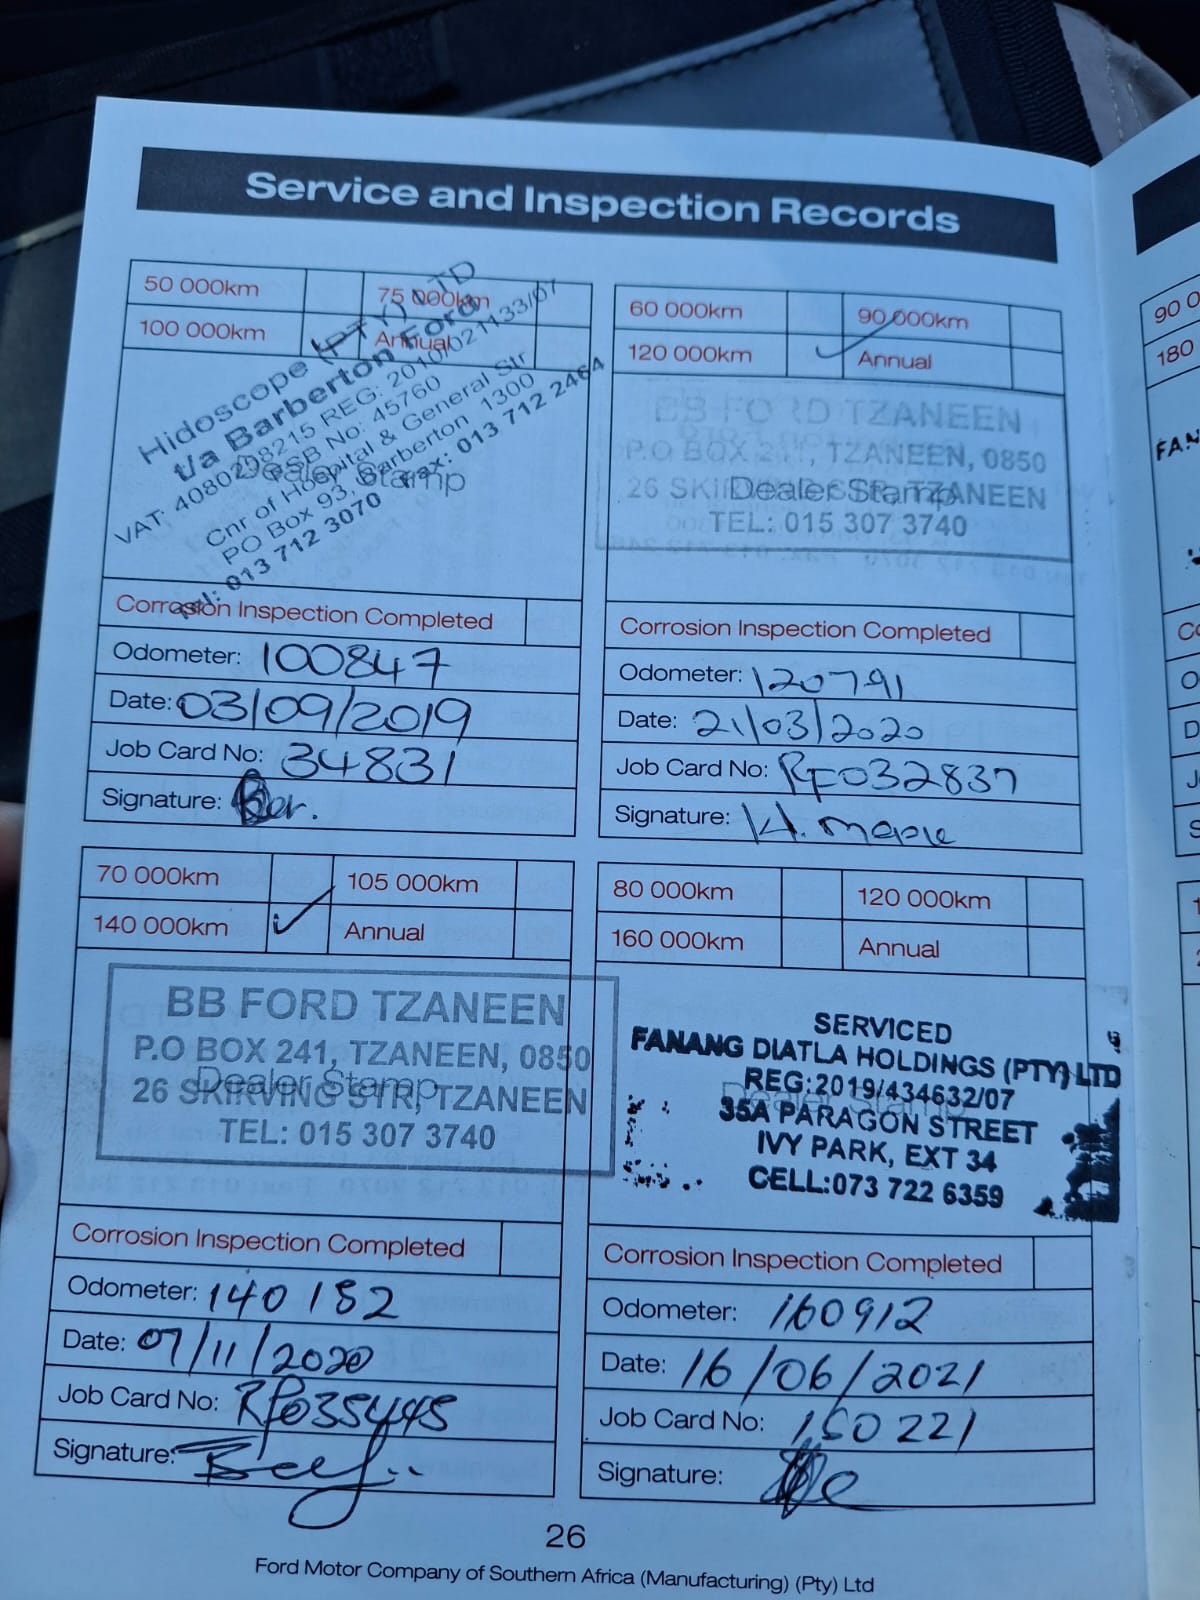 Service and Inspection Records
50 000km
75 000km
100 000km
Annual
Hidoscope (PTY) LTD
t/a Barberton Ford
VAT: 4080298215 REG: 2010/021133/07
DSB No: 45760
Dealer Stamp
Cnr of Hospital & General Str
PO Box 93, Barberton 1300
Tel: 013 712 3070 Fax: 013 712 2464
Corrosion Inspection Completed
Odometer: 100847
Date: 03/09/2019
Job Card No: 34831
Signature:
60 000km
90 000km
120 000km
Annual
BB FORD TZANEEN
P.O BOX 241, TZANEEN, 0850
26 SKIRVING STR, TZANEEN
Dealer Stamp
TEL: 015 307 3740
Corrosion Inspection Completed
Odometer: 120791
Date: 21/03/2020
Job Card No: RF032837
Signature:
70 000km
105 000km
140 000km
Annual
BB FORD TZANEEN
P.O BOX 241, TZANEEN, 0850
Dealer Stamp
26 SKIRVING STR, TZANEEN
TEL: 015 307 3740
Corrosion Inspection Completed
Odometer: 140182
Date: 07/11/2020
Job Card No: RF035445
Signature:
80 000km
120 000km
160 000km
Annual
SERVICED
FANANG DIATLA HOLDINGS (PTY) LTD
REG:2019/434632/07
Dealer Stamp
35A PARAGON STREET
IVY PARK, EXT 34
CELL:073 722 6359
Corrosion Inspection Completed
Odometer: 160912
Date: 16/06/2021
Job Card No: 150221
Signature:
26
Ford Motor Company of Southern Africa (Manufacturing) (Pty) Ltd
90 0
180
FAN